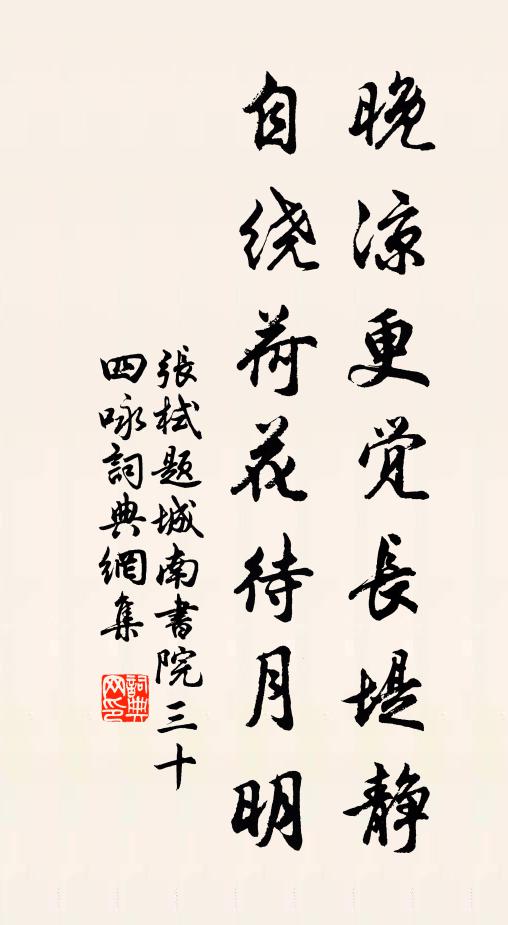 晚凉更觉長堤静
自绕荷花待月明
張栻题城南書院三十
四咏詞典網集
詞典网印